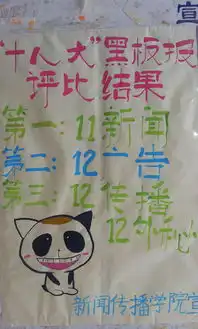 宣
“十八大”黑板报
评比结果
第一:11新闻
第二:12广告
第三:12传播
12外心
新闻传播学院宣